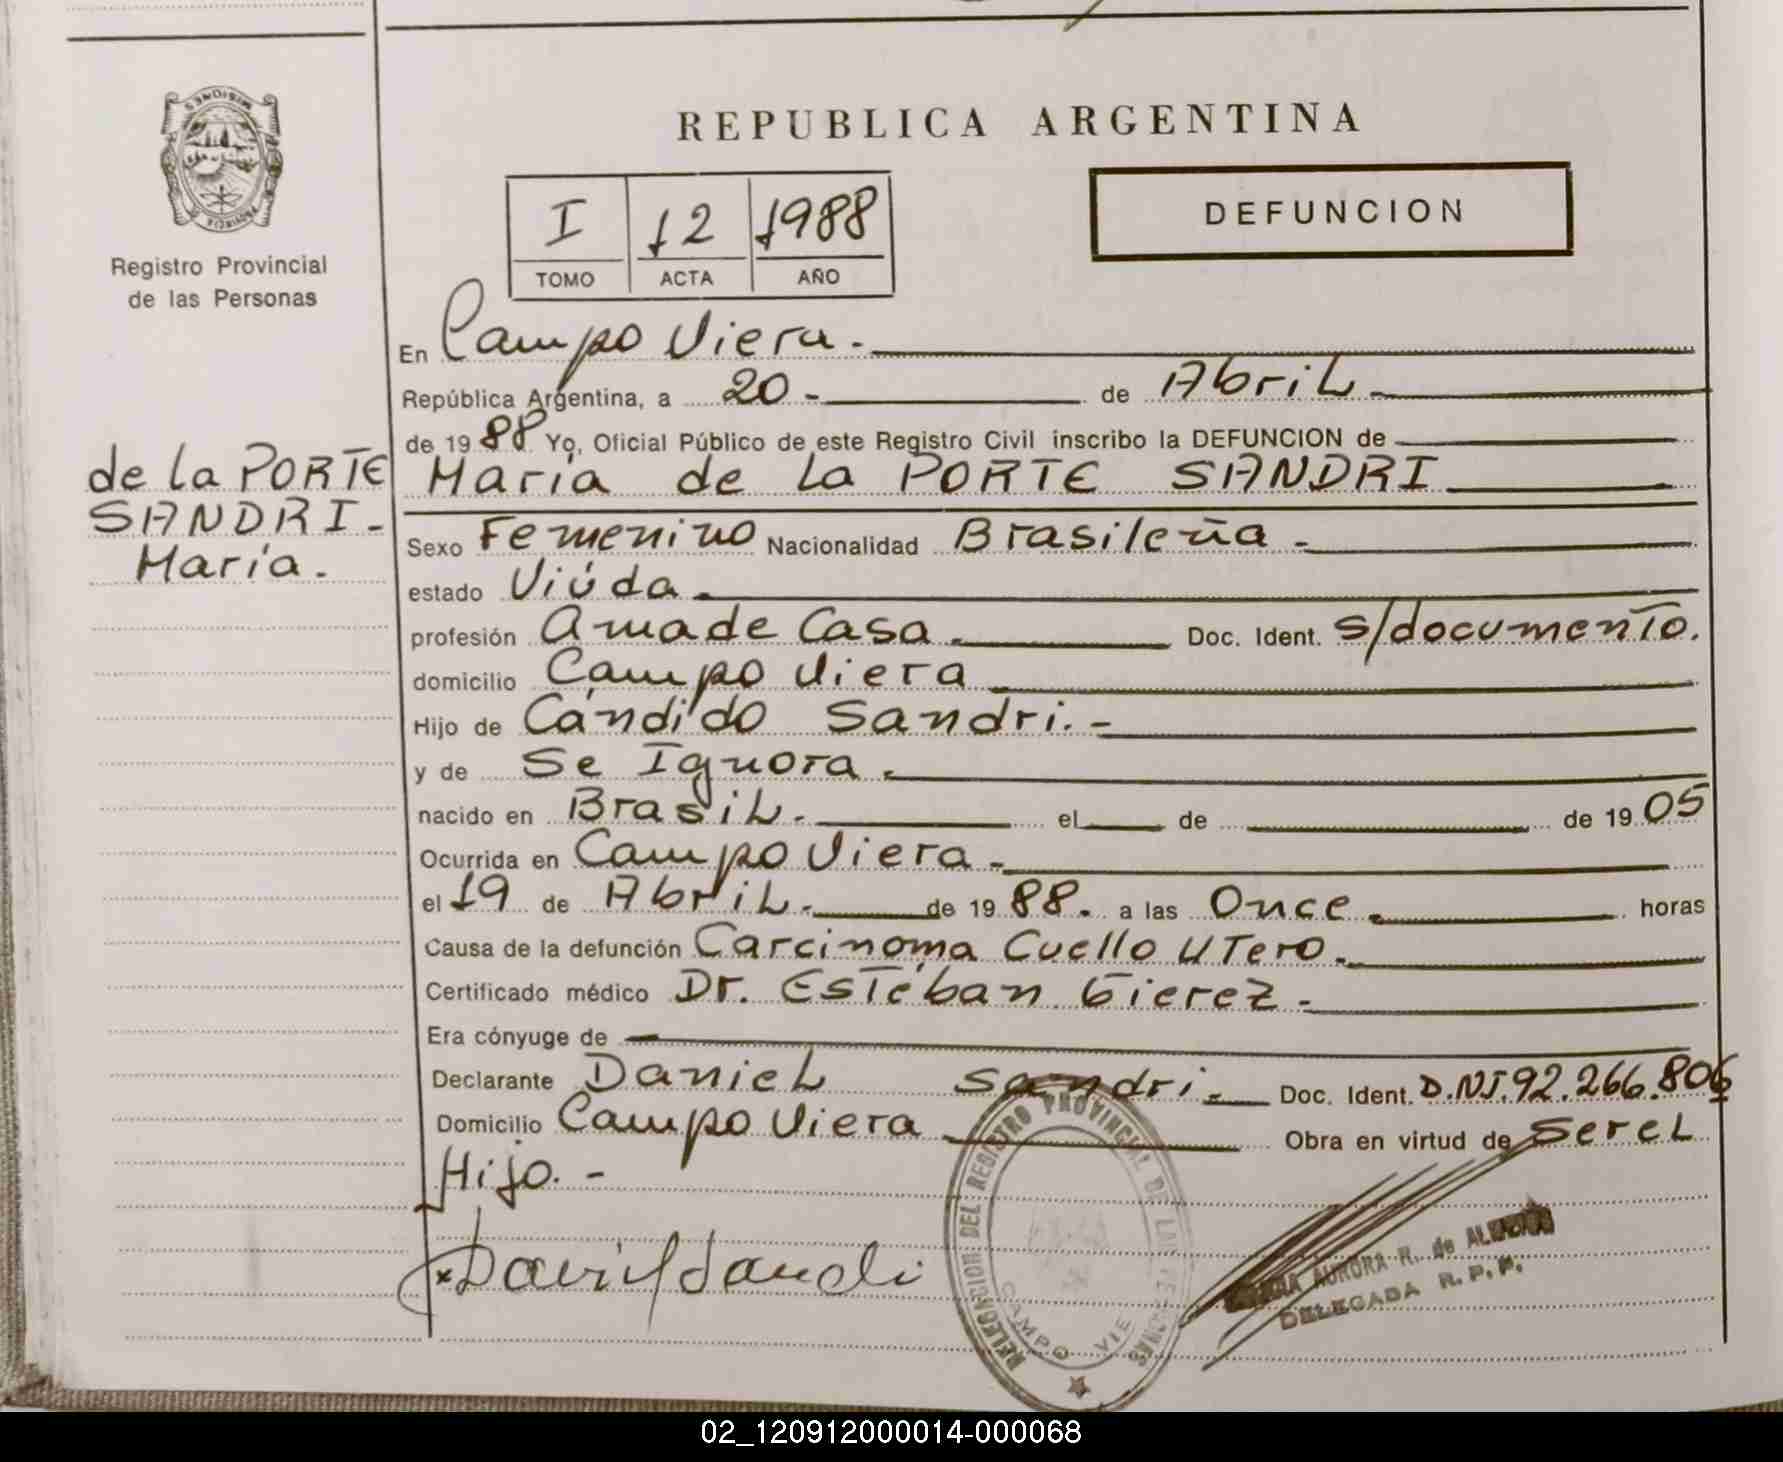 MISIONES
PROVINCIA
Registro Provincial
de las Personas
REPUBLICA ARGENTINA
I 12 1988
TOMO ACTA AÑO
DEFUNCION
En Campo Viera.-
República Argentina, a 20- de Abril
de 1988 Yo, Oficial Público de este Registro Civil inscribo la DEFUNCION de
María de la PORTE SANDRI
de la PORTE
SANDRI-
María.-
Sexo Femenino Nacionalidad Brasileña-
estado Viúda.
profesión Ama de Casa. Doc. Ident. s/documento.
domicilio Campo Viera
Hijo de Cándido Sandri.-
y de Se Ignora.
nacido en Brasil. el de de 1905
Ocurrida en Campo Viera-
el 19 de Abril. de 1988. a las Once. horas
Causa de la defunción Carcinoma Cuello UTero.
Certificado médico Dr. Estéban Gierez-
Era cónyuge de
Declarante Daniel Sandri. Doc. Ident. D.N.I. 92.266.806
Domicilio Campo Viera Obra en virtud de Ser el
Hijo.-
x Daniel Sandri
DELEGACION DEL REGISTRO PROVINCIAL DE LAS PERSONAS
CAMPO VIE
AURORA R. de
DELEGADA R. P. P.
02_120912000014-000068